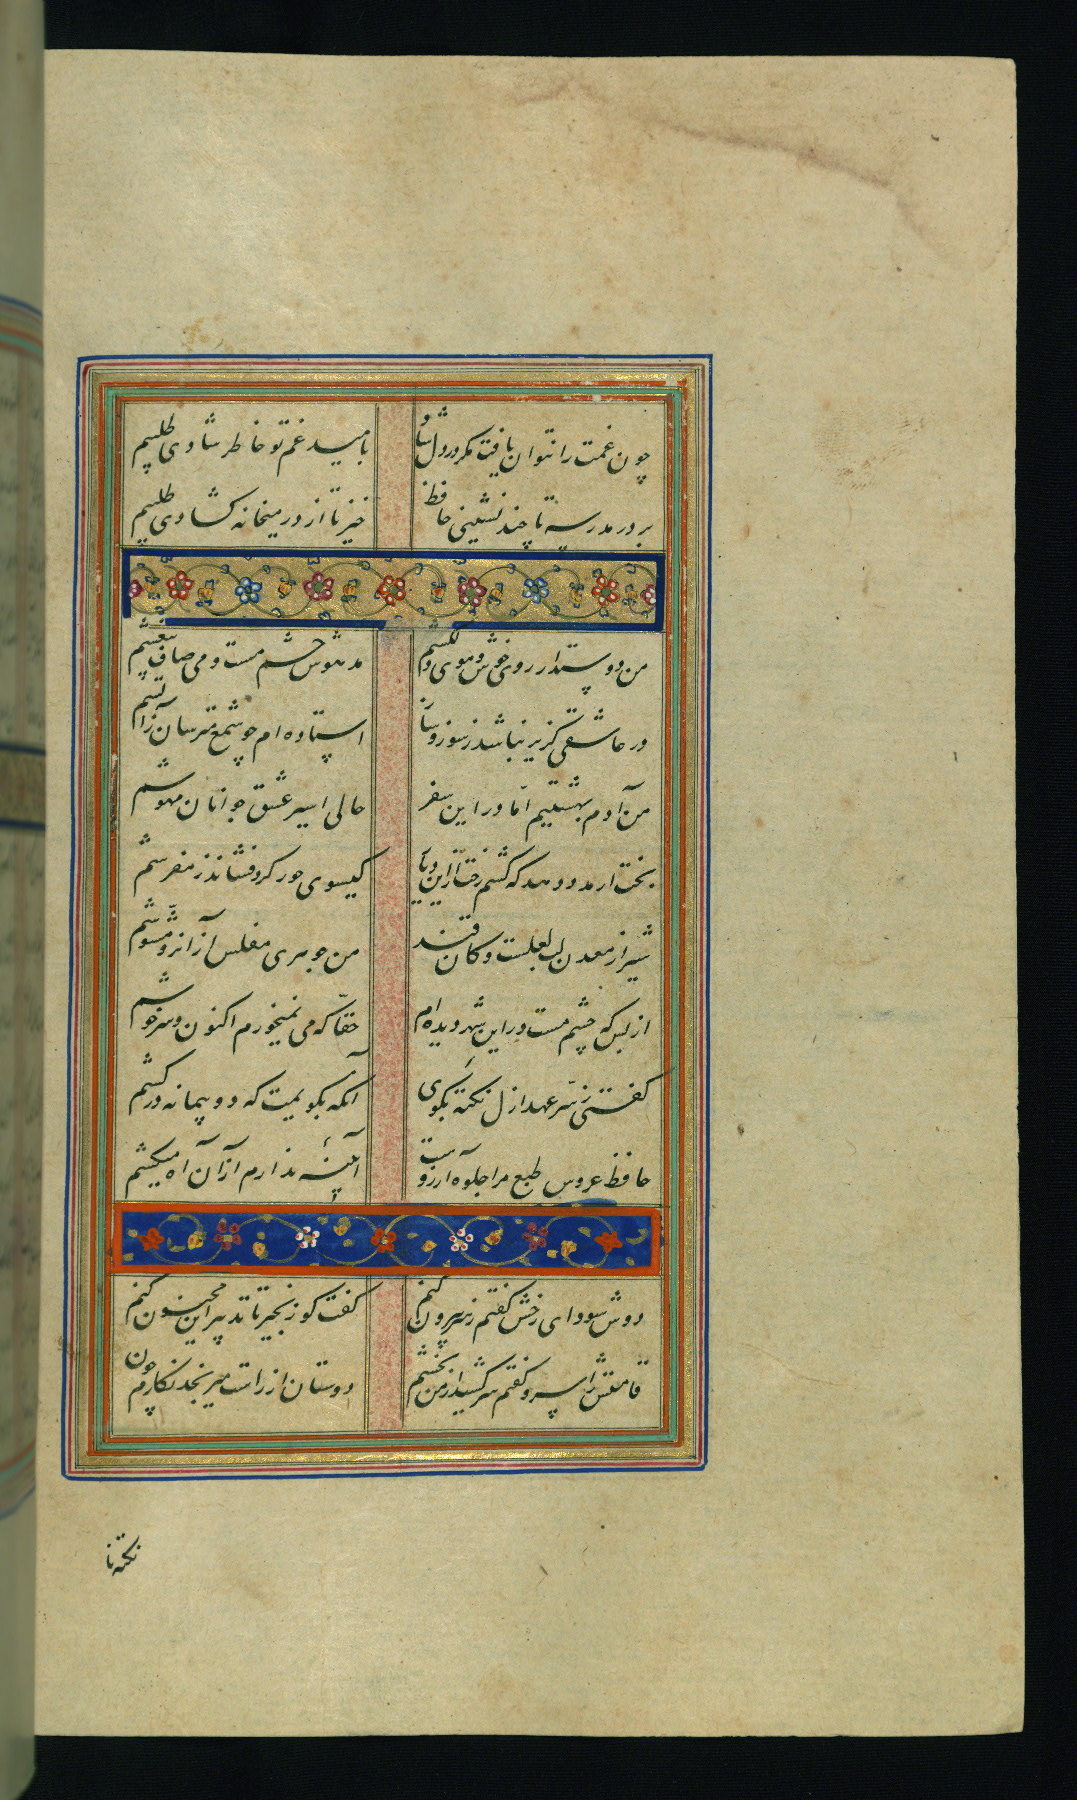 چون غمت را نتوان یافت مگر در دل شاد
بامید غم تو خاطر شادی طلبیم
بر در مدرسه تا چند نشینی حافظ
خیز تا از در میخانه کشادی طلبیم
من دوستدار روی خوش و موی دلکشم
مدهوش چشم مست و می صاف بیغشم
در عاشقی گزیر نباشد ز سوز و ساز
استاده ام چو شمع مترسان ز آتشم
من آدم بهشتیم اما در این سفر
حالی اسیر عشق جوانان مهوشم
بخت ار مدد دهد که کشم رخت ازین دیار
گیسوی حور گرد فشاند ز مفرشم
شیراز معدن لب لعلست و کان
من جوهری مفلس از آنرو مشوشم
از بس که چشم مست در این شهر دیده ام
حقا که می نمیخورم اکنون و سرخوشم
گفتی ز سر عهد ازل نکته بگوی
آنگه بگویمت که دو پیمانه در کشم
حافظ عروس طبع مرا جلوه آرزوست
آیینه ندارم از آن آه میکشم
دوش سودای رخش گفتم ز سر بیرون کنم
گفت کو زنجیر تا تدبیر این مجنون کنم
قامتش را سرو گفتم سر کشید از من بخشم
دوستان از راست میرنجد نگارم چون
نکته نا